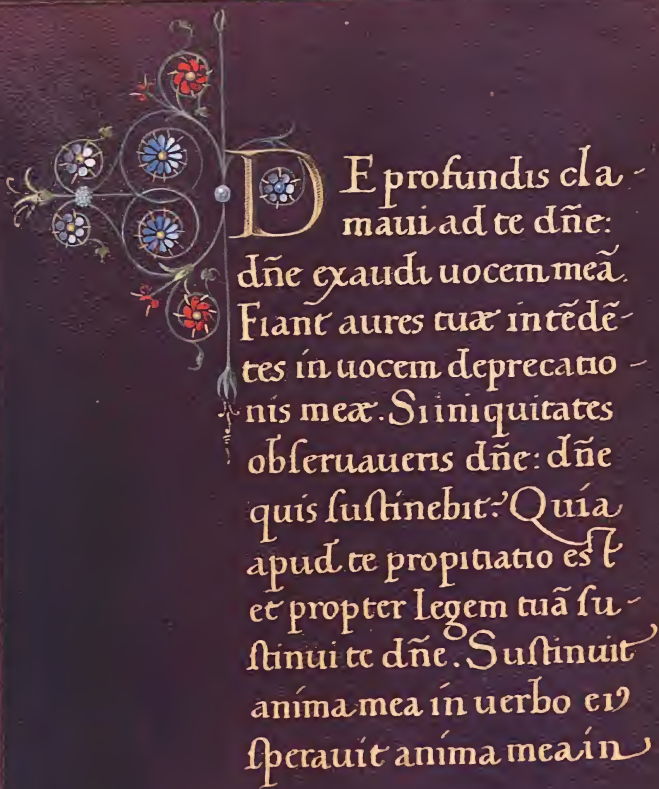 DE profundis cla-
maui ad te dñe:
dñe exaudi uocem meã.
Fiant aures tuæ intẽdẽ-
tes in uocem deprecatio-
nis meæ. Si iniquitates
obſeruaueris dñe: dñe
quis ſuſtinebit? Quia
apud te propitiatio est
et propter legem tuã ſu-
ſtinui te dñe. Suſtinuit
anima mea in uerbo eiꝰ
ſperauit anima mea in